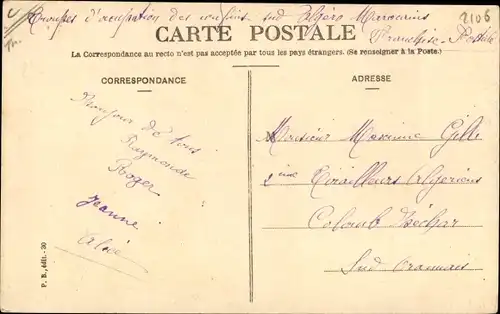 Troupes d'occupation des confins sud Algéro Marocains
2106
CARTE POSTALE
Franchise Postale
La Correspondance au recto n'est pas acceptée par tous les pays étrangers. (Se renseigner à la Poste.)
CORRESPONDANCE
ADRESSE
Bonjour de tous
Raymonde
Roger
Jeanne
Monsieur Maxime Gille
2ème Tirailleurs Algériens
Colomb Béchar
Sud Oranais
P. B., édit. - 30